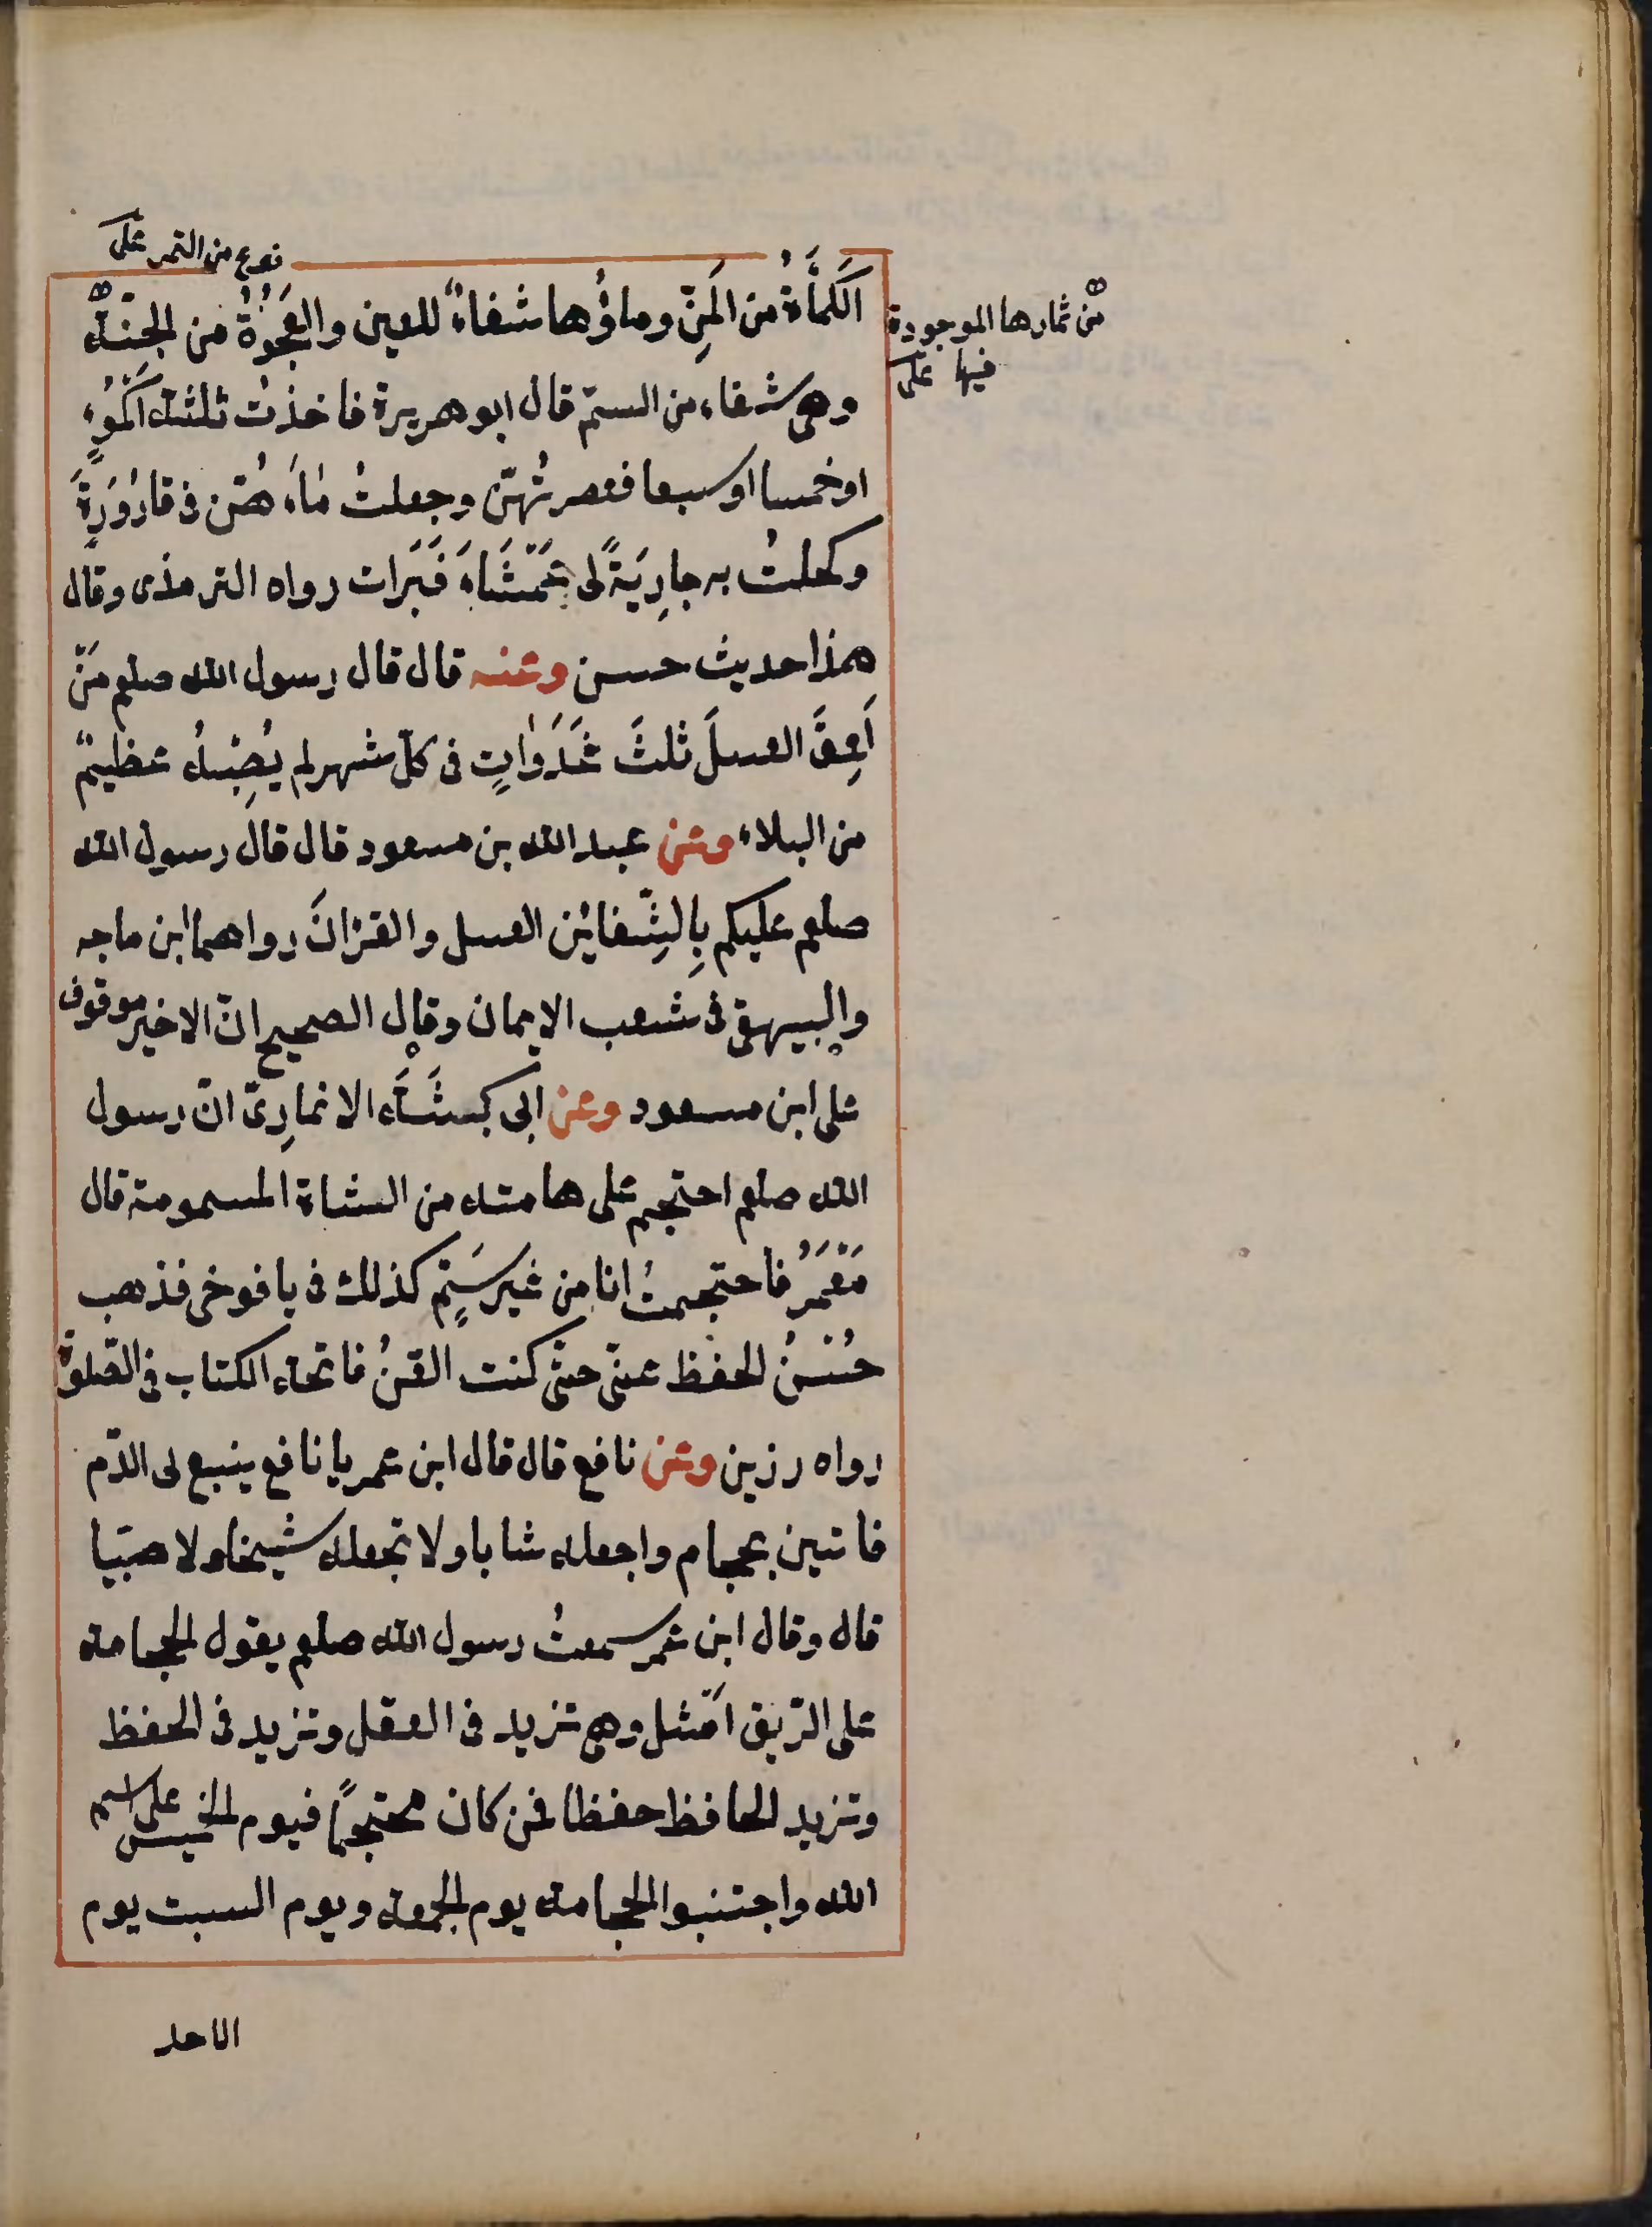 نوع من التمر على
الكَمأَةُ من المَنِّ وماؤُها شفاءٌ للعين والعَجْوَةُ من الجنّة
من ثمارها الموجودة
فيها على
وهى شفاء من السمّ قال ابو هريرة فاخذتُ ثلثة اَكْمُؤٍ
او خمسا او سبعا فعصرتُهنّ وجعلتُ ماءَ هنّ فى قارُورَةٍ
وكحلتُ به جارِيَةً لى عَمْشَاءَ فَبَرَات رواه الترمذى وقال
هذا حديث حسن وعنه قال قال رسول الله صلعم مَنْ
لَعِقَ العسلَ ثلثَ غَدَوَاتٍ فى كلّ شهر لم يُصِبْهُ عظيمٌ
من البلاء وعن عبد الله بن مسعود قال قال رسول الله
صلعم عليكم بِالشِّفائين العسل والقرْان رواهما ابن ماجه
والبيهقى فى شعب الايمان وقال الصحيح انّ الاخير موقوف
على ابن مسعود وعن ابى كبشَة الانمارِىّ انّ رسول
الله صلعم احتجم على هامته من الشاة المسمومة قال
مَعْمَرُ فاحتجمتُ انا من غير سَمٍّ كذلك فى يافوخى فذهب
حُسْنُ الحفظ عنّى حتّى كنت القّنُ فاتحة الكتاب فى الصّلوة
رواه رزين وعن نافع قال قال ابن عمر يا نافع ينبع لى الدّم
فاتنين بحجام واجعله شابا ولا تجعله شيخا ولا صبيّا
قال وقال ابن عمر سمعتُ رسول الله صلعم يقول الحجامة
على الرّيق اَمْثل وهى تزيد فى العقل وتزيد فى الحفظ
وتزيد الحافظ حفظا فمن كان محتجمًا فيوم الخميس على اسم
الله واجتنبوا الحجامة يوم الجمعة ويوم السبت يوم
الاحد